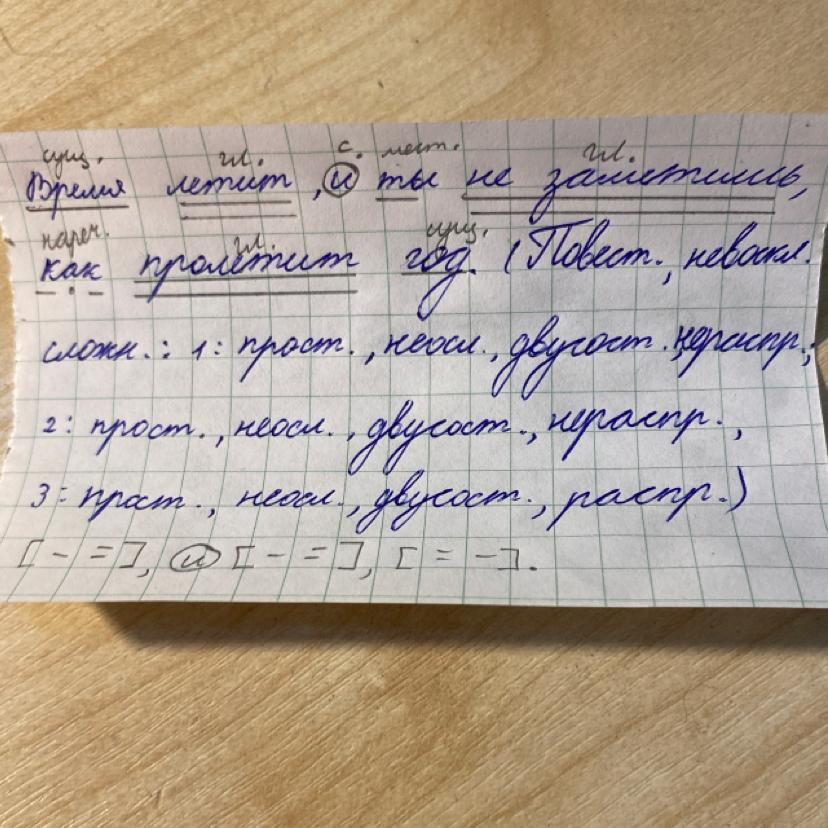 сущ. гл. с. мест. гл.
Время летит, и ты не заметишь,
нареч. гл. сущ.
как пролетит год. (Повест., невоскл.
сложн.: 1: прост., неосл., двусост. нераспр.;
2: прост., неосл., двусост., нераспр.,
3: прост., неосл., двусост., распр.)
[- =], и [- =], [= -].